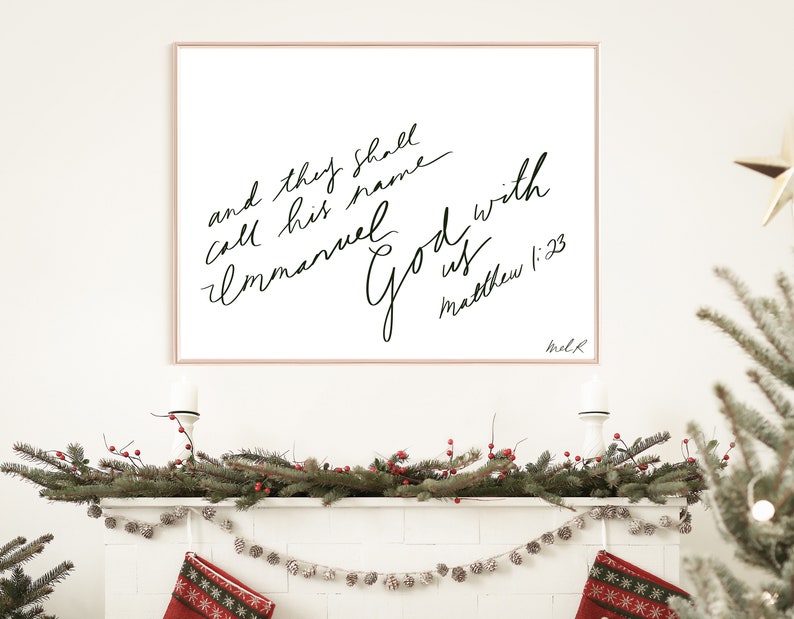 and they shall
call his name
Immanuel
God with
us
Matthew 1:23
Mel.R